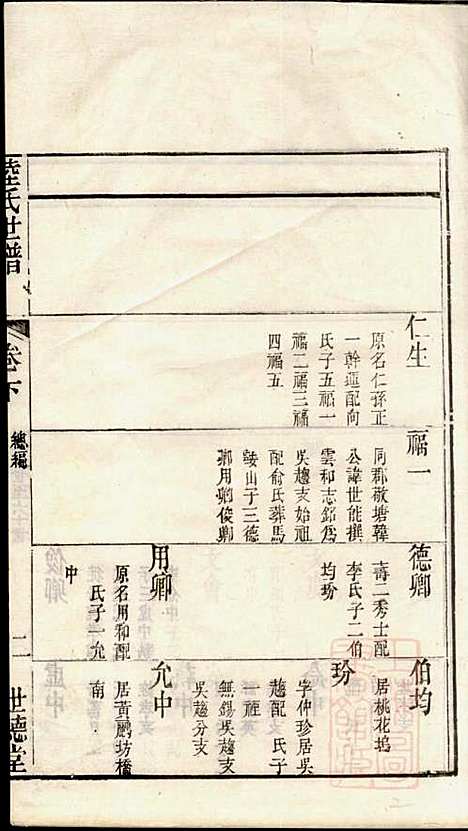 仁生
原名仁孫正
一幹蓮配向
氏子五福一
福二福三福
四福五
福一
同郡敬塘韓
公諱世能撰
雲和志銘為
吳趨支始祖
配俞氏葬馬
鞍山子三德
卿用卿俊卿
德卿
壽二秀士配
李氏子二伯
均玢
用卿
原名用和配
氏子一允
中
伯均
居桃花塢
玢
字仲珍居吳
趨配 氏子
一旌
無錫吳趨支
吳趨分支
允中
居黃鸝坊橋
南
陸氏世譜
卷下
總編
二
世德堂